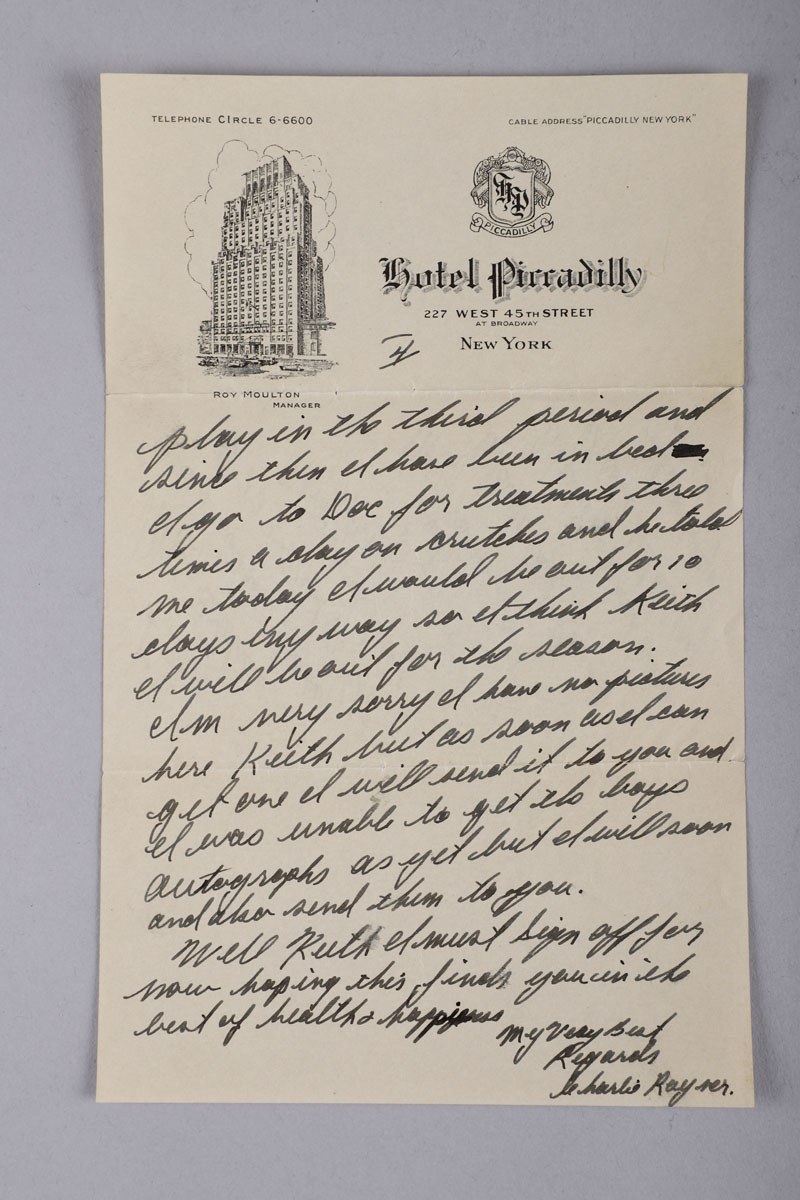 TELEPHONE CIRCLE 6-6600
CABLE ADDRESS "PICCADILLY NEW YORK"
HP
PICCADILLY
Hotel Piccadilly
227 WEST 45TH STREET
AT BROADWAY
NEW YORK
II
ROY MOULTON
MANAGER
play in the third period and
since then I have been in bed
I go to Doc for treatments three
times a day on crutches and he told
me today I would be out for 10
days iny way so I think Keith
I will be out for the season.
I'm very sorry I have no pictures
here Keith but as soon as I can
get one I will send it to you and
I was unable to get the boys
autographs as yet but I will soon
and also send them to you.
Well Keith I must sign off for
now hoping this finds you in the
best of health & happiness
My Very Best
Regards
Charlie Rayner.